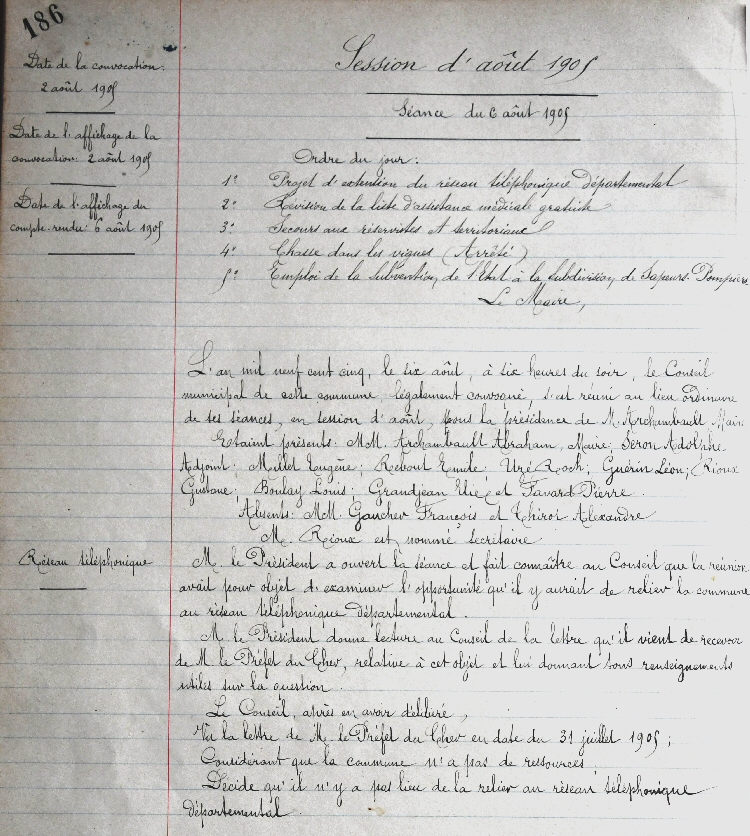 186
Date de la convocation:
2 août 1905
Date de l'affichage de la
convocation: 2 août 1905
Date de l'affichage du
compte-rendu: 6 août 1905
Session d'août 1905
Séance du 6 août 1905
Ordre du jour:
1° Projet d'extention du réseau téléphonique départemental
2° Révision de la liste d'assistance médicale gratuite
3° Secours aux réservistes et territoriaux
4° Chasse dans les vignes (Arrêté)
5° Emploi de la Subvention de l'Etat à la Subdivision de Sapeurs-Pompiers
Le Maire,
L'an mil neuf cent cinq, le six août, à six heures du soir, le Conseil
municipal de cette commune, légalement convoqué, s'est réuni au lieu ordinaire
de ses séances, en session d'août, sous la présidence de M. Archambault Maire
Etaient présents: MM. Archambault Abraham, Maire; Séron Adolphe
Adjoint; Millet Eugène; Rebout Emile; Uzé Roch; Guérin Léon; Rioux
Gustave; Boulay Louis; Grandjean Elie; et Favard Pierre.
Absents: MM. Gaucher François et Thirot Alexandre
M. Rioux est nommé secrétaire
Réseau téléphonique
M. le Président a ouvert la séance et fait connaître au Conseil que la réunion
avait pour objet d'examiner l'opportunité qu'il y aurait de relier la commune
au réseau téléphonique départemental.
M. le Président donne lecture au Conseil de la lettre qu'il vient de recevoir
de M. le Préfet du Cher, relative à cet objet et lui donnant tous renseignements
utiles sur la question.
Le Conseil, après en avoir délibéré,
Vu la lettre de M. le Préfet du Cher en date du 31 juillet 1905;
Considérant que la commune n'a pas de ressources;
Décide qu'il n'y a pas lieu de la relier au réseau téléphonique
départemental.